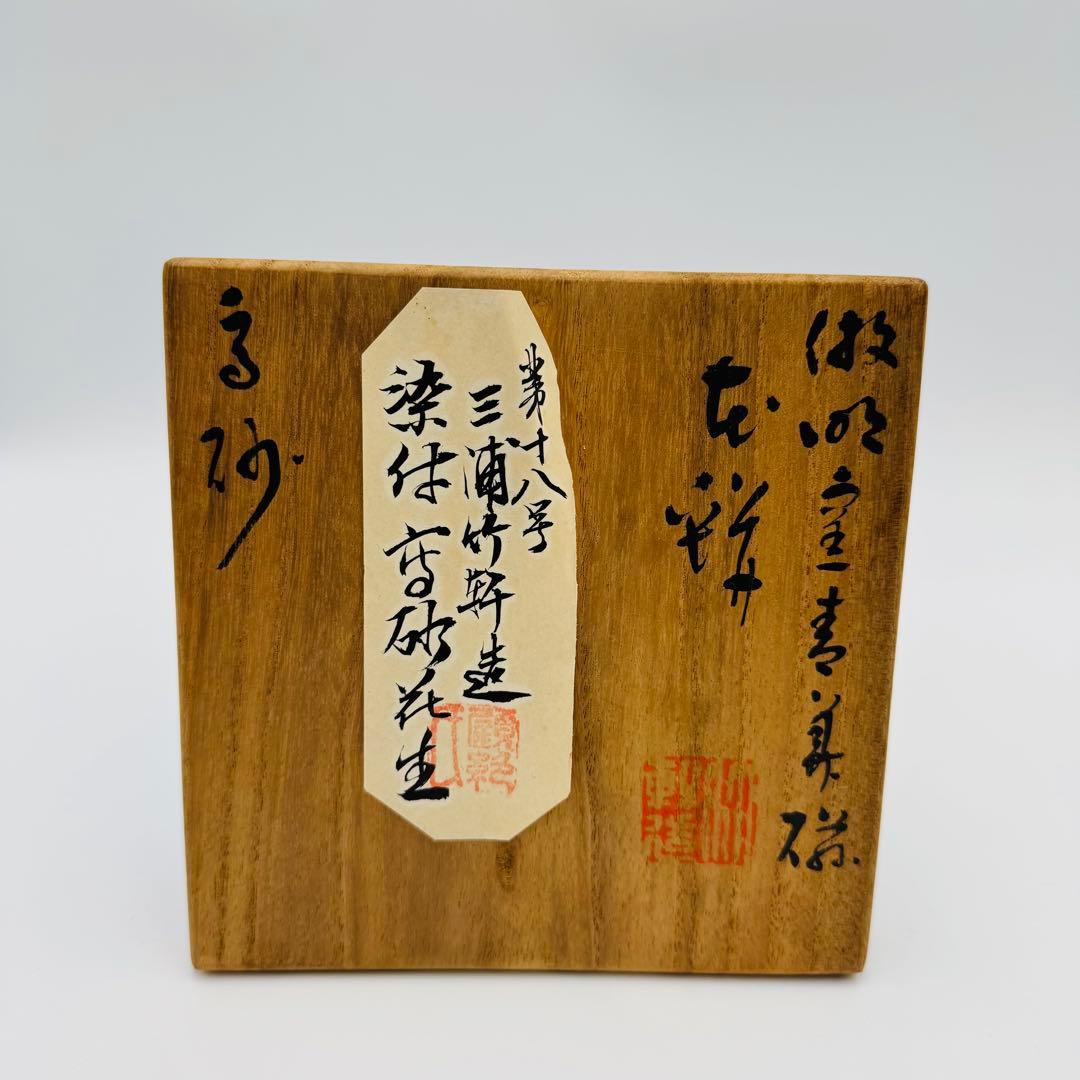 倣明窯青華磁
花瓶
第十八号
三浦竹軒造
染付高砂花生
高砂